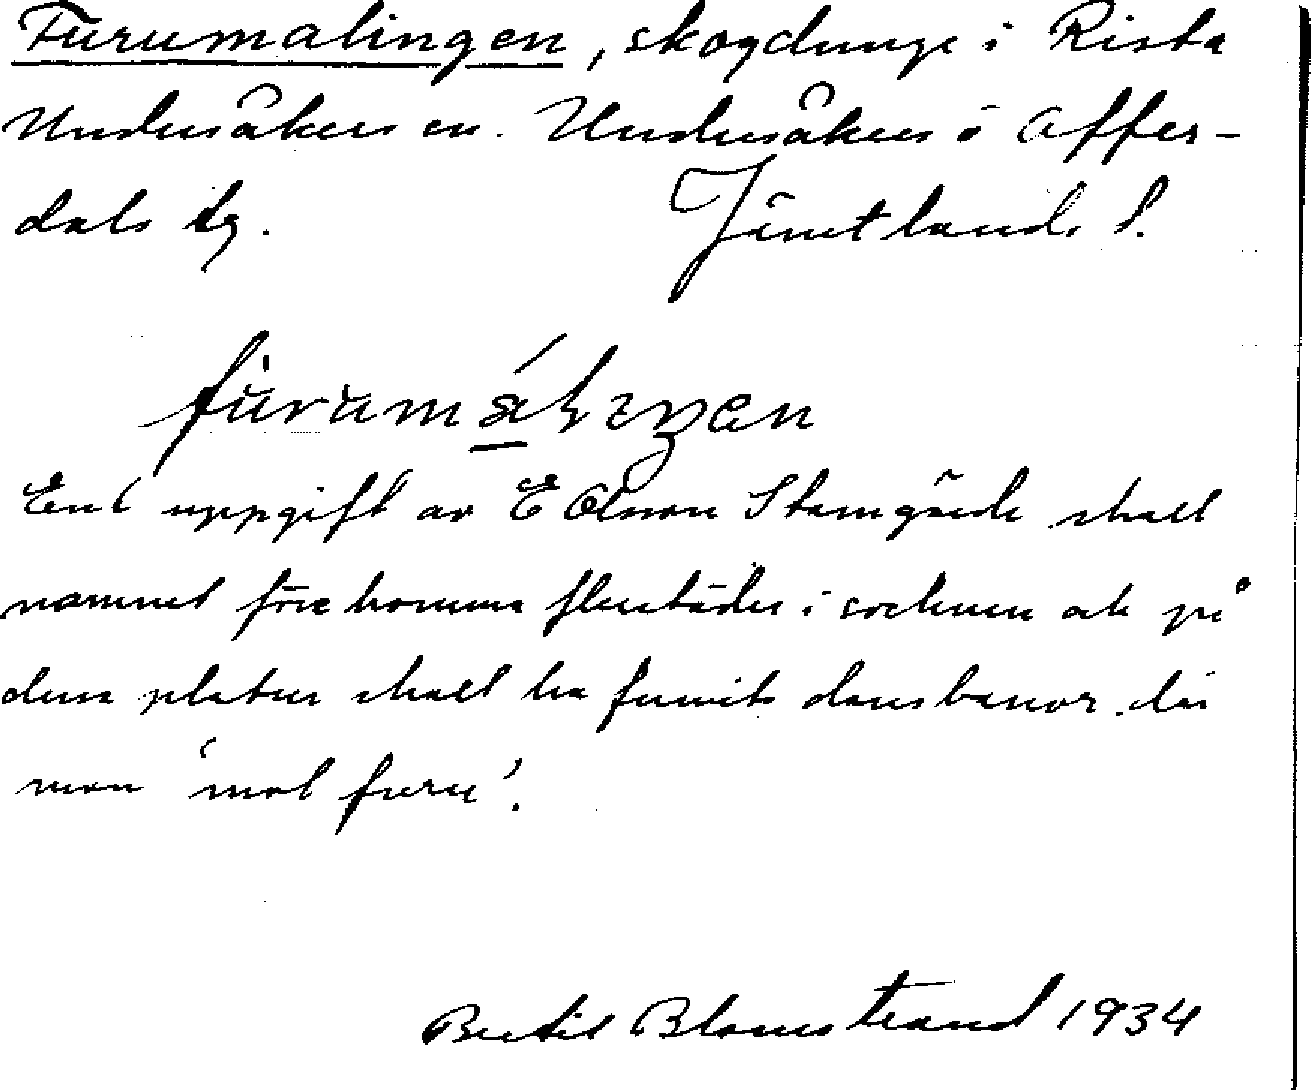 Furumalingen, skogdunge i Rista
Undersåkers sn. Undersåkers o Offer-
dals tg. Jämtlands l.
furumálıŋen
Enl uppgift av E Olsson Stamgärde skall
namnet förekomma flerstädes i socknen och på
dessa platser skall ha funnits dansbanor där
man 'mol furu'.
Bertil Blomstrand 1934